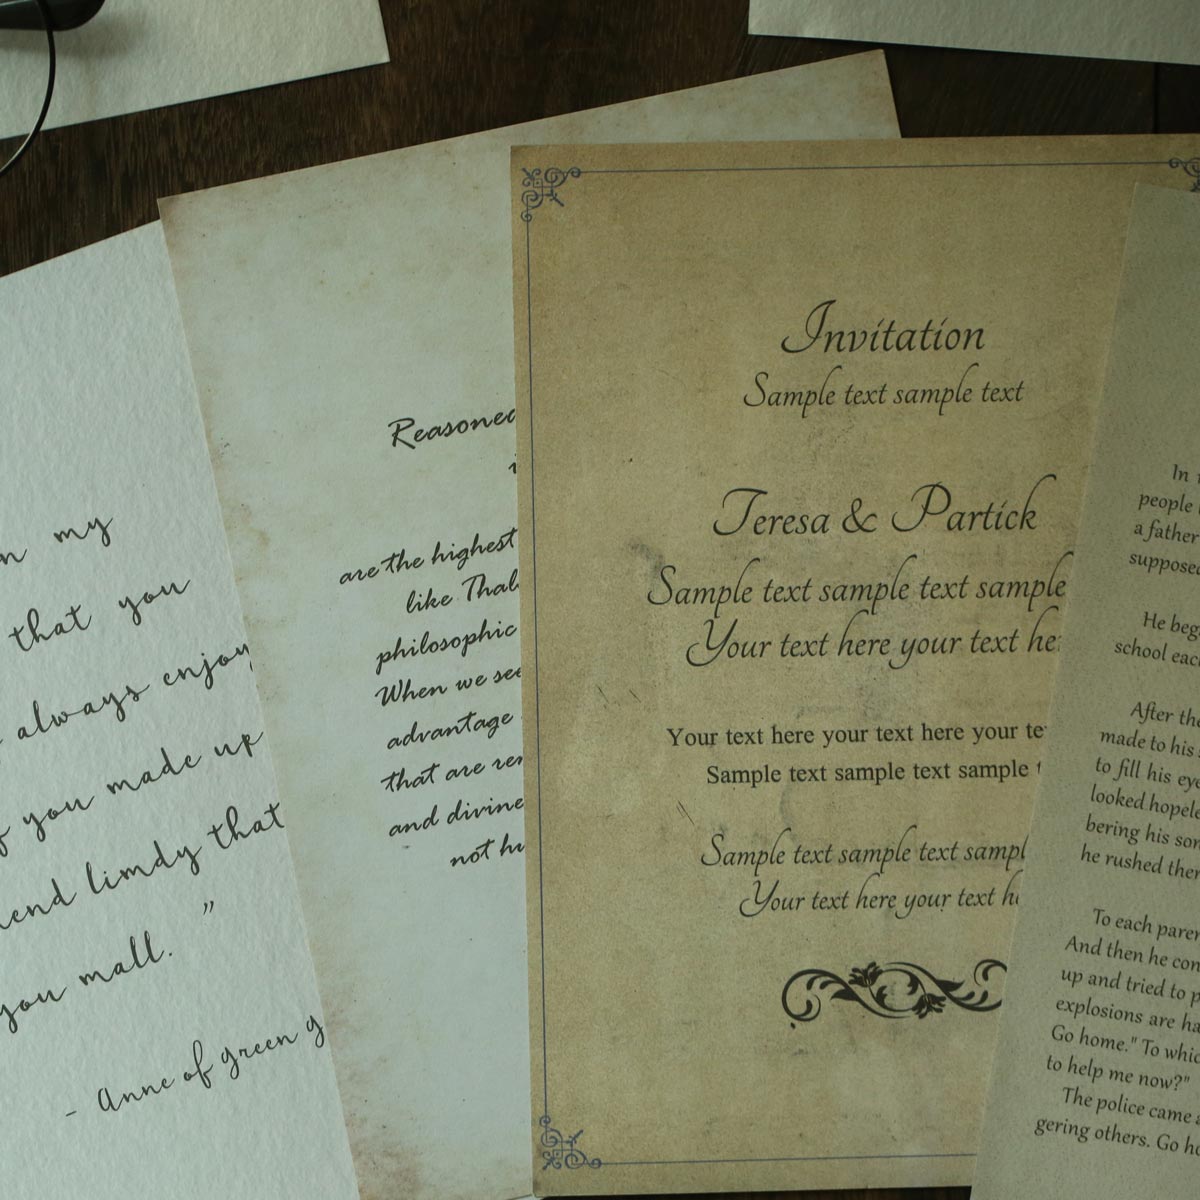 my
that you
always enjoy
you made up
limdy that
you mall. ”
- Anne of green g
Reasoned
are the highest
like Thal
philosophic
When we see
advantage
that are rem
and divine
not hu
Invitation
Sample text sample text
Teresa & Partick
Sample text sample text sample
Your text here your text he
Your text here your text here your te
Sample text sample text sample t
Sample text sample text sampl
Your text here your text h
In
people
a father
supposed
He bega
school eac
After the
made to his
to fill his eye
looked hopele
bering his son
he rushed ther
To each paren
And then he con
up and tried to p
explosions are ha
Go home." To whic
to help me now?"
The police came a
gering others. Go ho